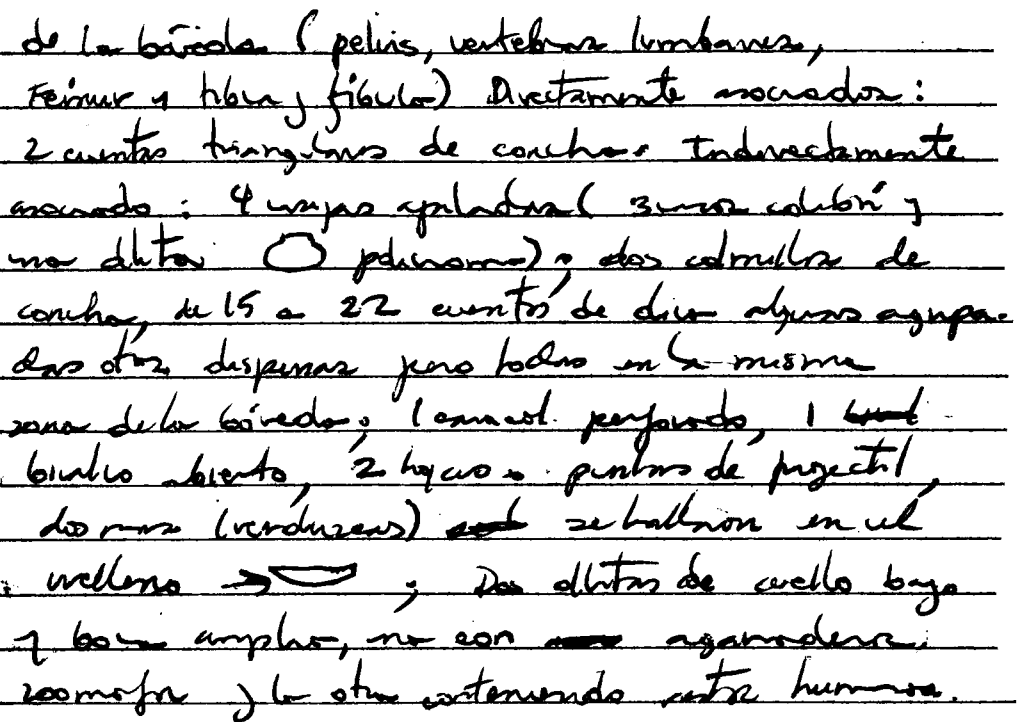 de la bóveda (pelvis, vertebras lumbares,
Femur y tibia y fíbula) Directamente asociados:
2 cuentas triangulares de concha. Indirectamente
asociado: 4 vasijas apiladas ( colibrí y
una ollita ); dos colmillos de
concha, de 15 a 22 cuentas de disco algunas agrupa-
das otras dispersas pero todas en la misma
zona de la bóveda; 1 caracol perforado, 1
bivalvo abierto, 2 puntas de proyectil,
dos mas (verduzcas) se hallaron en el
relleno → ; Dos ollitas de cuello bajo
y boca amplia, una con agarradera
zoomorfa y la otra conteniendo restos humanos.